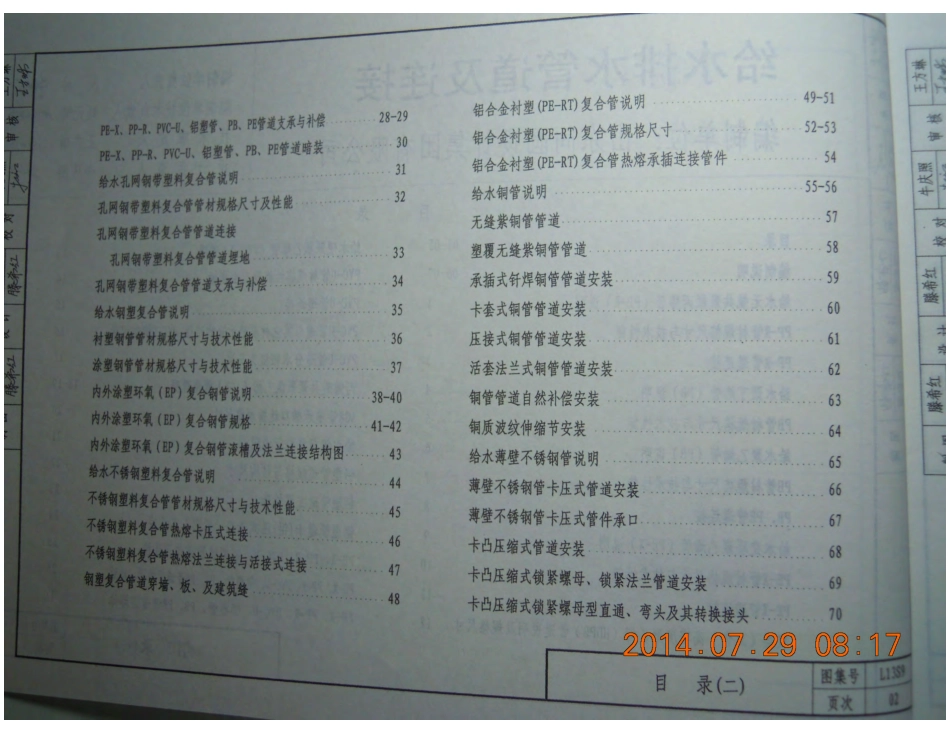 PE-X、PP-R、PVC-U、铝塑管、PB、PE管道支承与补偿 28-29
PE-X、PP-R、PVC-U、铝塑管、PB、PE管道暗装 30
给水孔网钢带塑料复合管说明 31
孔网钢带塑料复合管管材规格尺寸及性能 32
孔网钢带塑料复合管管道连接
孔网钢带塑料复合管管道埋地 33
孔网钢带塑料复合管管道支承与补偿 34
给水钢塑复合管说明 35
衬塑钢管管材规格尺寸与技术性能 36
涂塑钢管管材规格尺寸与技术性能 37
内外涂塑环氧(EP)复合钢管说明 38-40
内外涂塑环氧(EP)复合钢管规格 41-42
内外涂塑环氧(EP)复合钢管滚槽及法兰连接结构图 43
给水不锈钢塑料复合管说明 44
不锈钢塑料复合管管材规格尺寸与技术性能 45
不锈钢塑料复合管热熔卡压式连接 46
不锈钢塑料复合管热熔法兰连接与活接式连接 47
钢塑复合管道穿墙、板、及建筑缝 48
铝合金衬塑(PE-RT)复合管说明 49-51
铝合金衬塑(PE-RT)复合管规格尺寸 52-53
铝合金衬塑(PE-RT)复合管热熔承插连接管件 54
给水铜管说明 55-56
无缝紫铜管管道 57
塑覆无缝紫铜管管道 58
承插式钎焊铜管管道安装 59
卡套式铜管管道安装 60
压接式铜管管道安装 61
活套法兰式铜管管道安装 62
铜管管道自然补偿安装 63
铜质波纹伸缩节安装 64
给水薄壁不锈钢管说明 65
薄壁不锈钢管卡压式管道安装 66
薄壁不锈钢管卡压式管件承口 67
卡凸压缩式管道安装 68
卡凸压缩式锁紧螺母、锁紧法兰管道安装 69
卡凸压缩式锁紧螺母型直通、弯头及其转换接头 70
2014.07.29 08:17
目 录(二)
图集号 L13S9
页次 02
审核
校对
王方琳
审核
牛庆照
校对
滕希红
设计
滕希红